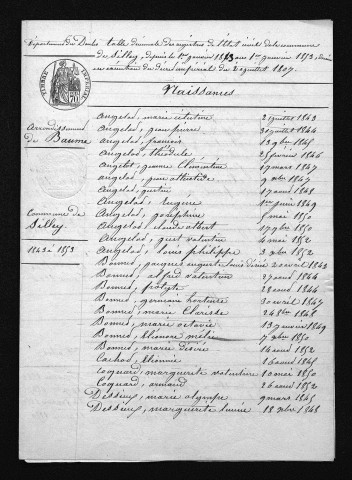 Département du Doubs table décennale des registres de l'état civil de la commune
de Silley, depuis le 1er janvier 1843 au 1er janvier 1853, dressée
en exécution du décret impérial du 20 juillet 1807.
TIMBRE IMPERIAL
70
Naissances
Arrondissement
de Baume
Commune de
Silley.
1843 à 1853
Angelot, marie 2 juillet 1843
Angelot, jean pierre 30 juillet 1844
Angelot, francois 13 9bre 1845
Angelot, théodule 25 février 1846
Angelot, jeanne Clémentine 19 mars 1847
Angelot, jean 9 9bre 1847
Angelot, justin 17 août 1848
Angelot, Eugene 1er juin 1849
Angelot, josephine 5 mai 1850
Angelot, claude albert 17 9bre 1850
Angelot, valentin 4 mai 1852
Angelot, louis philippe 3 9bre 1852
Bonnet, jacques auguste louis 20 avril 1843
Bonnet, alfred valentin 27 août 1844
Bonnet, 28 août 1844
Bonnet, germain hortaire 30 avril 1847
Bonnet, marie Clarisse 24 8bre 1848
Bonnet, marie octavie 13 janvier 1849
Bonnet, Eléonore mélie 7 9bre 1850
Bonnet, marie désiré 14 août 1852
Cachot, Etienne 16 août 1848
Coquard, marguerite valentine 20 mai 1850
Coquard, armand 26 août 1852
Dessieux, marie olympe 9 mars 1845
Dessieux, marguerite louise 18 9bre 1848